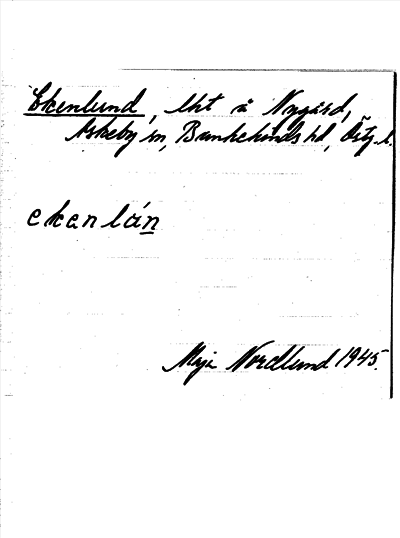 Ekenlund, lht å Nygård,
Askeby sn, Bankekinds hd, Östg. l.
ekanlán
Maja Nordlund 1945.